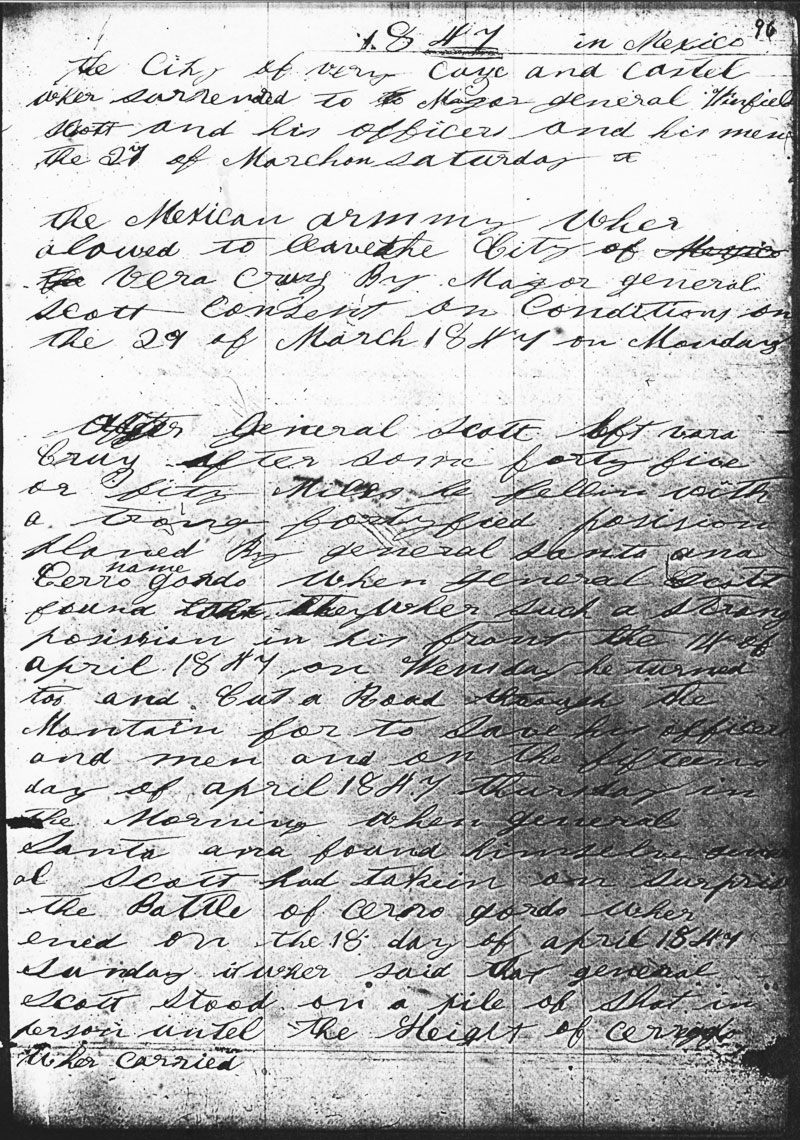 96
1847 in Mexico
the City of very Cruz and Castel
wher surrended to Major general Winfield
Scott and his officers and his men
the 27 of March on saturday
the Mexican armmy wher
alowed to leave the City of Mexico
Vera Cruz By Magor general
Scott Consent on Conditions on
the 29 of March 1847 on Monday
After general Scott left vara
Cruz after some forty five
or fifty Miles he fell in with
a trong fortyfied position
planed By general Santa ana
name
Cerro gordo When general Scott
found they wher such a strong
position in his front the 14 of
april 1847 on Wensday he turned
too and Cut a Road through the
Montain for to save his officers
and men and on the fifteens
day of april 1847 thursday in
the Morning when general
Santa ana found himselve gener
al Scott had takein on surprise
the Battle of cerro gordo wher
ened on the 18 day of april 1847
Sunday it wher said that general
Scott stood on a pile of shot in
person untel the Height of
wher carried